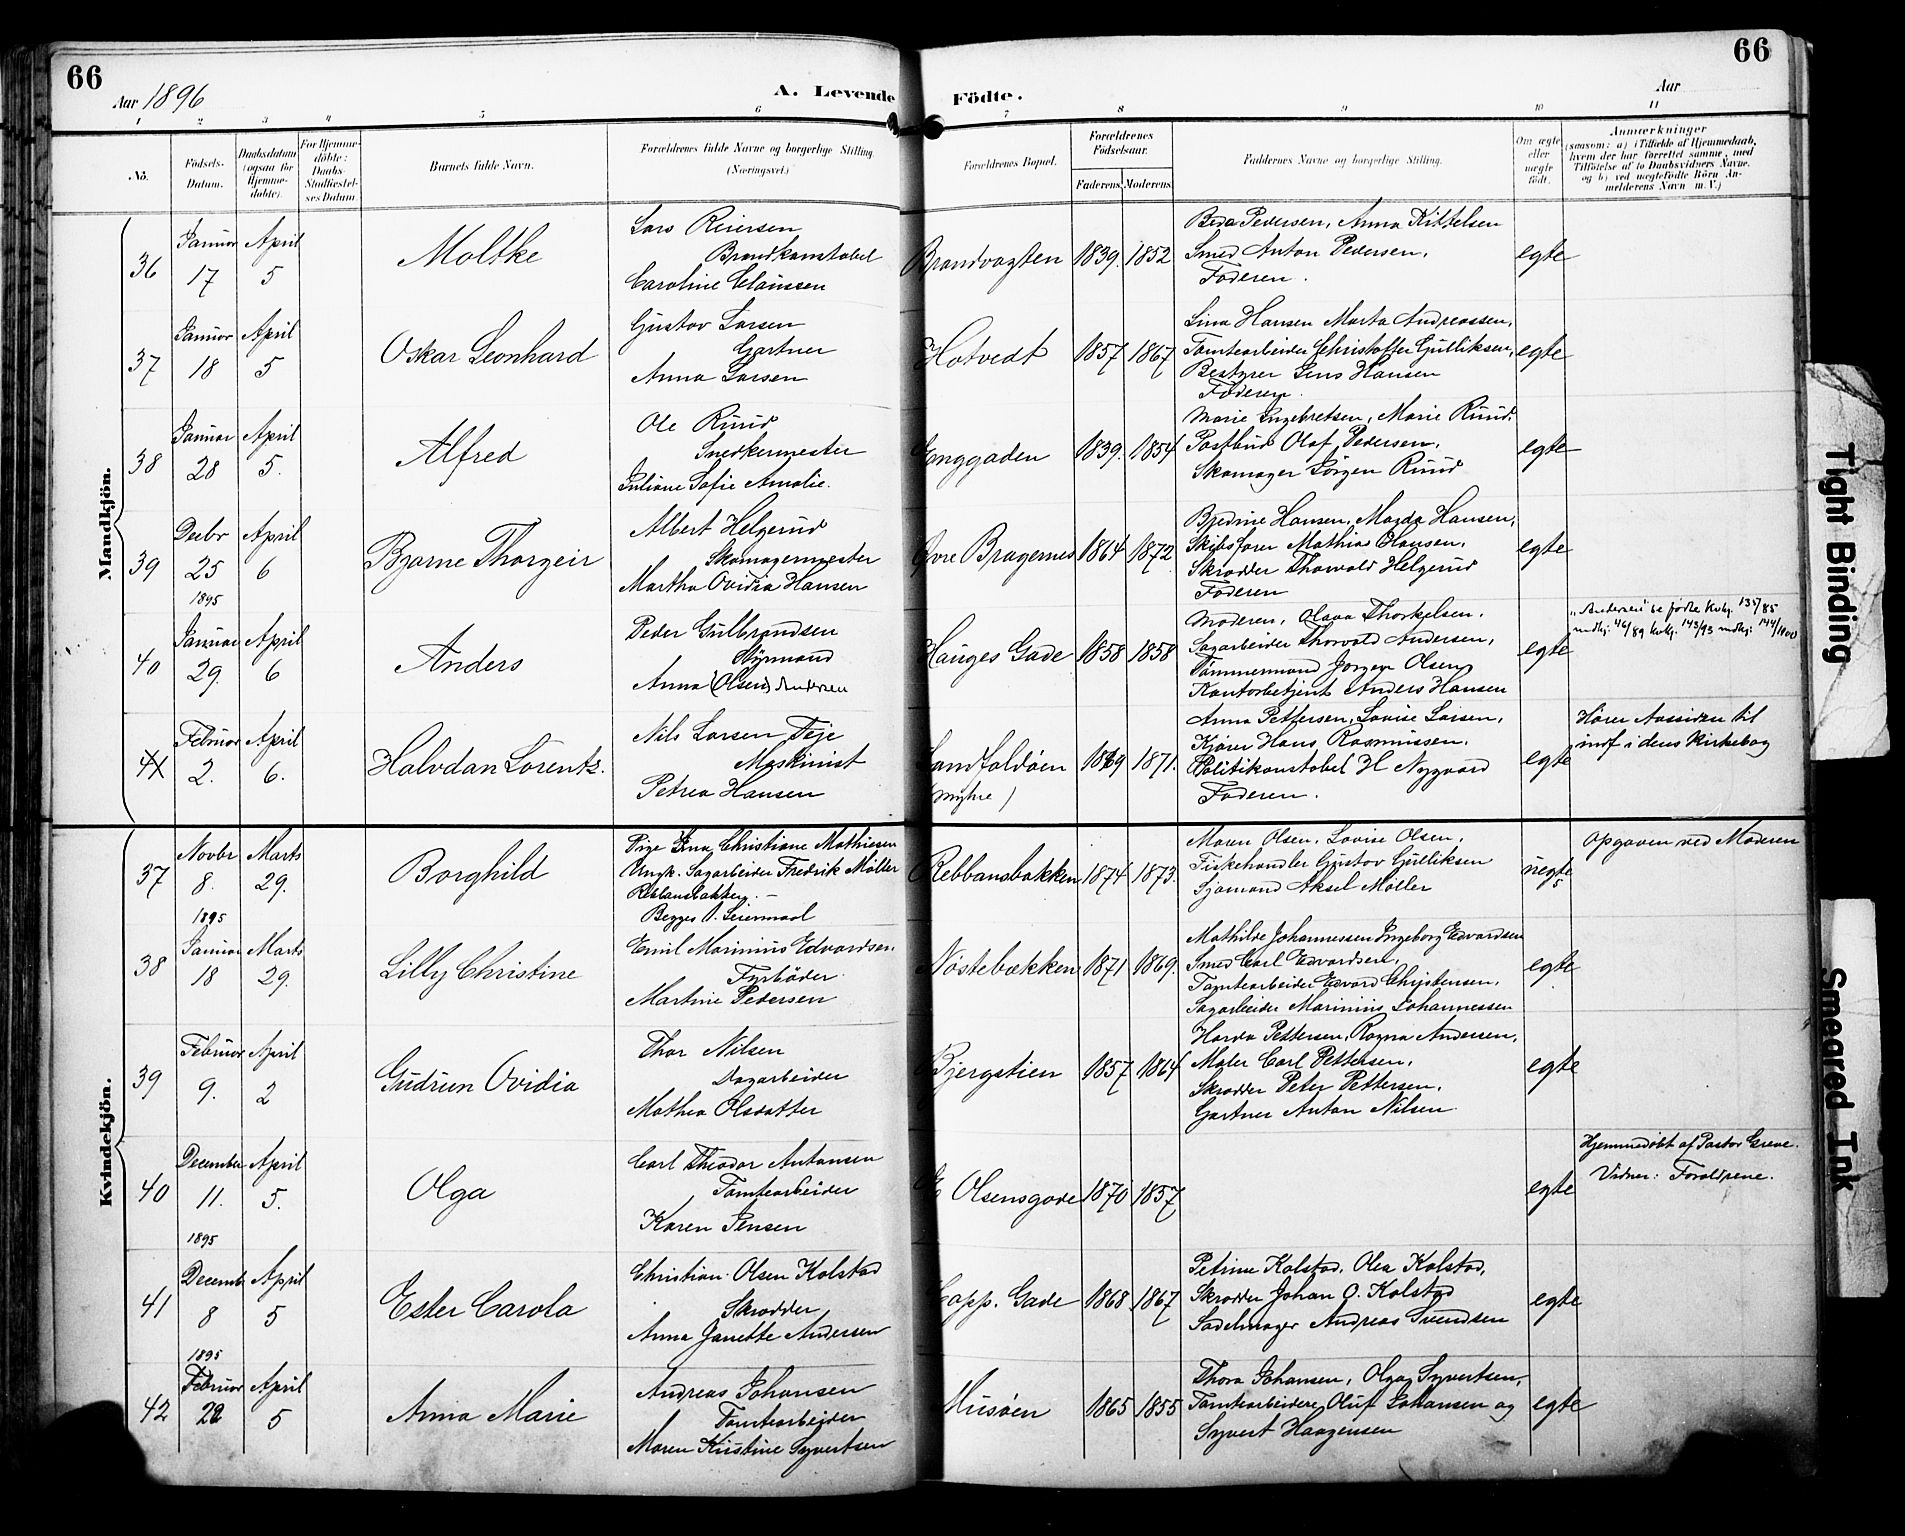 66
66
Aar 1896
A. Levende Födte.
Aar
1 2 3 4 5 6 7 8 9 10 11
No.
Födsels-Datum.
Daabsdatum (ogsaa for Hjemme-döbte).
For Hjemme-döbte: Daabs-Stadfæstel-ses Datum
Barnets fulde Navn.
Forældrenes fulde Navne og borgerlige Stilling. (Næringsvei.)
Forældrenes Bopæl.
Forældrenes Fødselsaar.
Faderens. Moderens.
Faddernes Navne og borgerlige Stilling.
Om ægte eller uægte født.
Anmærkninger
(saasom: a) i Tilfælde af Hjemmedaab, hvem der har forrettet samme, med Tilföielse af to Daabsvidners Navne. og b) ved uægtefödte Börn An-melderens Navn m. V.)
Mandkjön.
36
Januar 17
April 5
Moltke
Lars Reiersen
Brandkonstabel
Caroline Claussen
Brandvagten
1839. 1852
Pedersen, Anna Kittelsen
Smed Anton Pedersen,
Faderen.
egte
37
Januar 18
April 5
Oskar Leonhard
Gustav Larsen
Gartner
Anna Larsen
Hotvedt
1857 1867
Lina Hansen Marta Andreassen,
Tomtearbeider Christoffer Gulliksen,
Bestyrer Jens Hansen
Faderen.
egte
38
Januar 28
April 5.
Alfred
Ole Ruud
Snedkermester
Juliane Sofie Amalie.
Enggaden
1839. 1854
Marie Ingebretsen, Marie Ruud.
Postbud Olaf Pedersen,
Skomager Jörgen Ruud
egte
39
Decbr 25 1895
April 6
Bjarne Thorgeir
Albert Helgerud
Skomagermester
Martha Ovidia Hansen
Övre Bragernes
1864 1872
Hansen, Magda Hansen,
Skibsförer Mathias Hansen,
Skrædder Thorvald Helgerud
Faderen
egte
40
Januar 29.
April 6
Anders
Peder Gulbrandsen
Styrmand
Anna (Olsen) Andersen
Hauges Gade
1858 1858
Moderen, Olava Thorkelsen.
Sagarbeider Thorvald Andersen,
Tömmermand Jorgen Olsen,
Kontorbetjent Anders Hansen
egte
"Andersen" se födte kvkj. 135/85
mdkj. 46/89 kvkj. 143/93 mdkj. 144/1900
41
Februar 2.
April 6.
Halvdan Lorentz.
Nils Larsen Teje
Maskinist
Petrea Hansen
Landfaldöen
(Myhre)
1869 1871.
Anna Pettersen, Lovise Larsen,
Kjörer Hans Rasmussen.
Politikonstabel H Nygaard
Faderen.
egte
Hörer Aassiden til
inf i dens Kirkebog
Kvindekjön.
37
Novbr 8. 1895
Marts 29.
Borghild
Pige Christiane Mathiesen
Ungk. Sagarbeider Fredrik Möller
Rebbansbakken. —
Begges 1. Leiermaal
Rebbansbakken
1874 1873.
Maren Olsen, Lovise Olsen,
Fiskehandler Gustav Gulliksen
Sjömand Aksel Möller
uegte
Opgaven ved Moderen
38
Januar 18
Marts 29.
Lilly Christine
Emil Marinius Edvardsen.
Fyrböder
Martine Pedersen
Nöstebækken
1871 1869.
Mathilde Johannessen Ingeborg Edvardsen
Smed Carl Edvardsen,
Tomtearbeider Edvard Christensen,
Sagarbeider Marinius Johannessen
egte
39
Februar 9.
April 2
Gudrun Ovidia
Thor Nilsen
Dagarbeider
Mathea Olsdatter
Bjergstien
1857 1864
Pettersen, Ragna Andersen,
Maler Carl Pettersen,
Skrædder Peter Pettersen,
Gartner Anton Nilsen
egte
40
December 11. 1895
April 5.
Olga
Carl Theodor Antonsen
Tomtearbeider
Karen Jensen
E Olsensgade
1870 1857
egte
Hjemmedöbt af Pastor Greve.
Vidner: Forældrene.
41
Decemb 8 1895
April 5
Ester Carola
Christian Olsen Kolstad
Skrædder
Anna Janette Andersen
Capp. Gade
1868 1867
Petrine Kolstad, Olea Kolstad,
Skrædder Johan O. Kolstad
Sadelmager Andreas Svendsen
egte
42
Februar 22
April 5
Anna Marie
Andreas Johansen
Tomtearbeider
Maren Kristine Syvertsen
Musöen
1865 1855
Thora Johansen, Olga Syvertsen,
Tomtearbeidere Oluf Johansen og
Syvert Haagensen
egte
Tight Binding
Smeared Ink